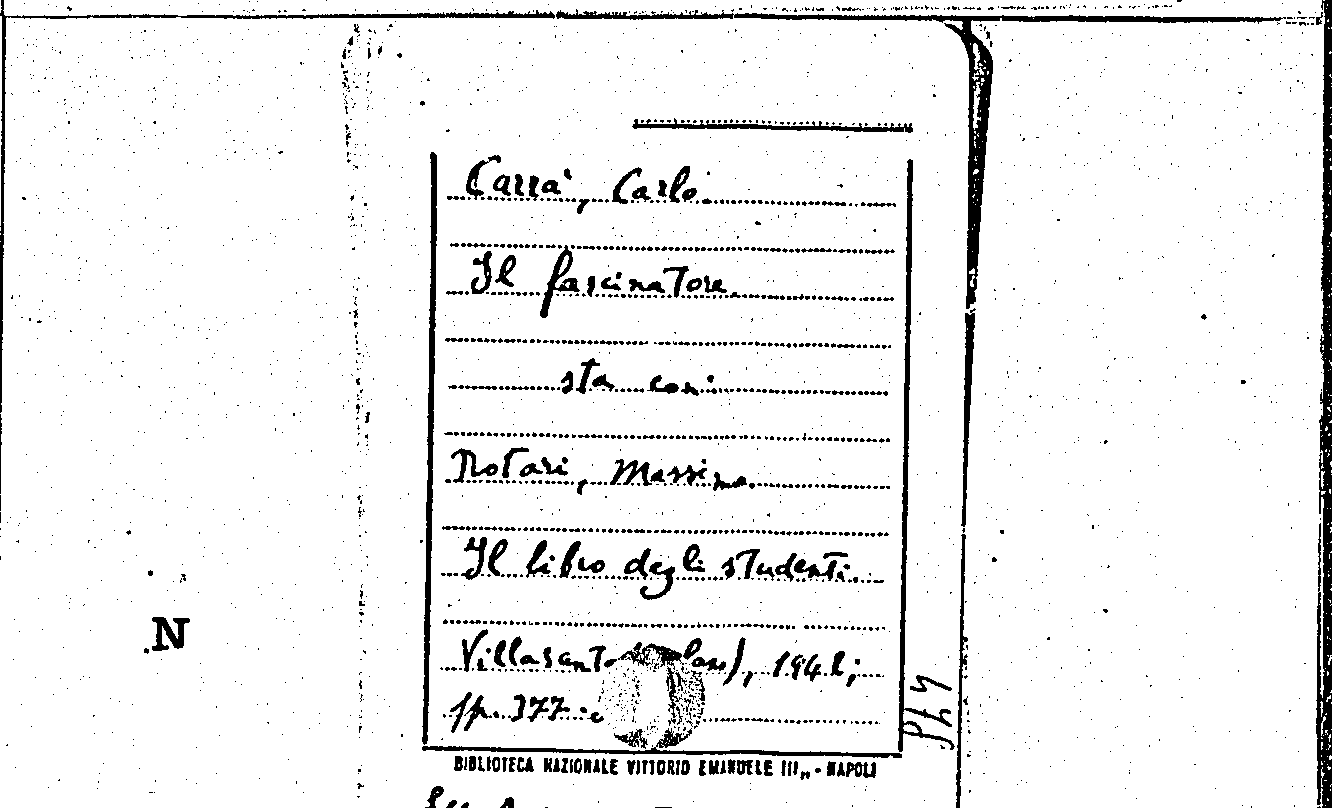 Carrà, Carlo.
Il fascinatore.
sta con:
Notari, Massimo.
Il libro degli studenti.
Villasanta 194
pp. 377
N
BIBLIOTECA NAZIONALE VITTORIO EMANUELE III„ - NAPOLI